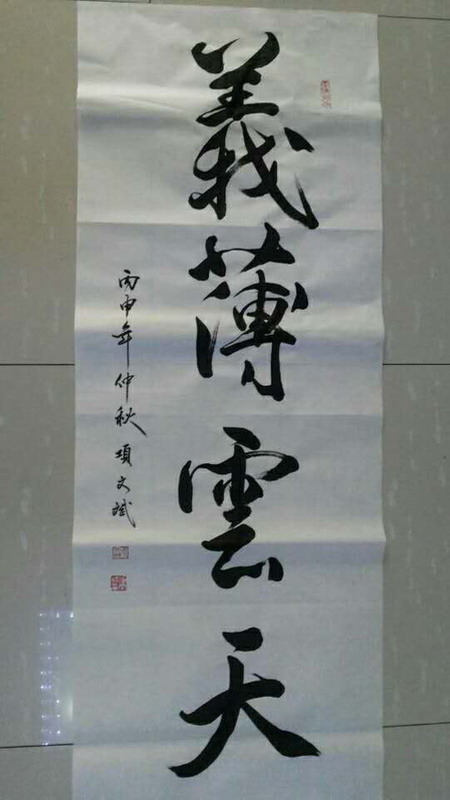 義薄雲天
丙申年仲秋項文斌